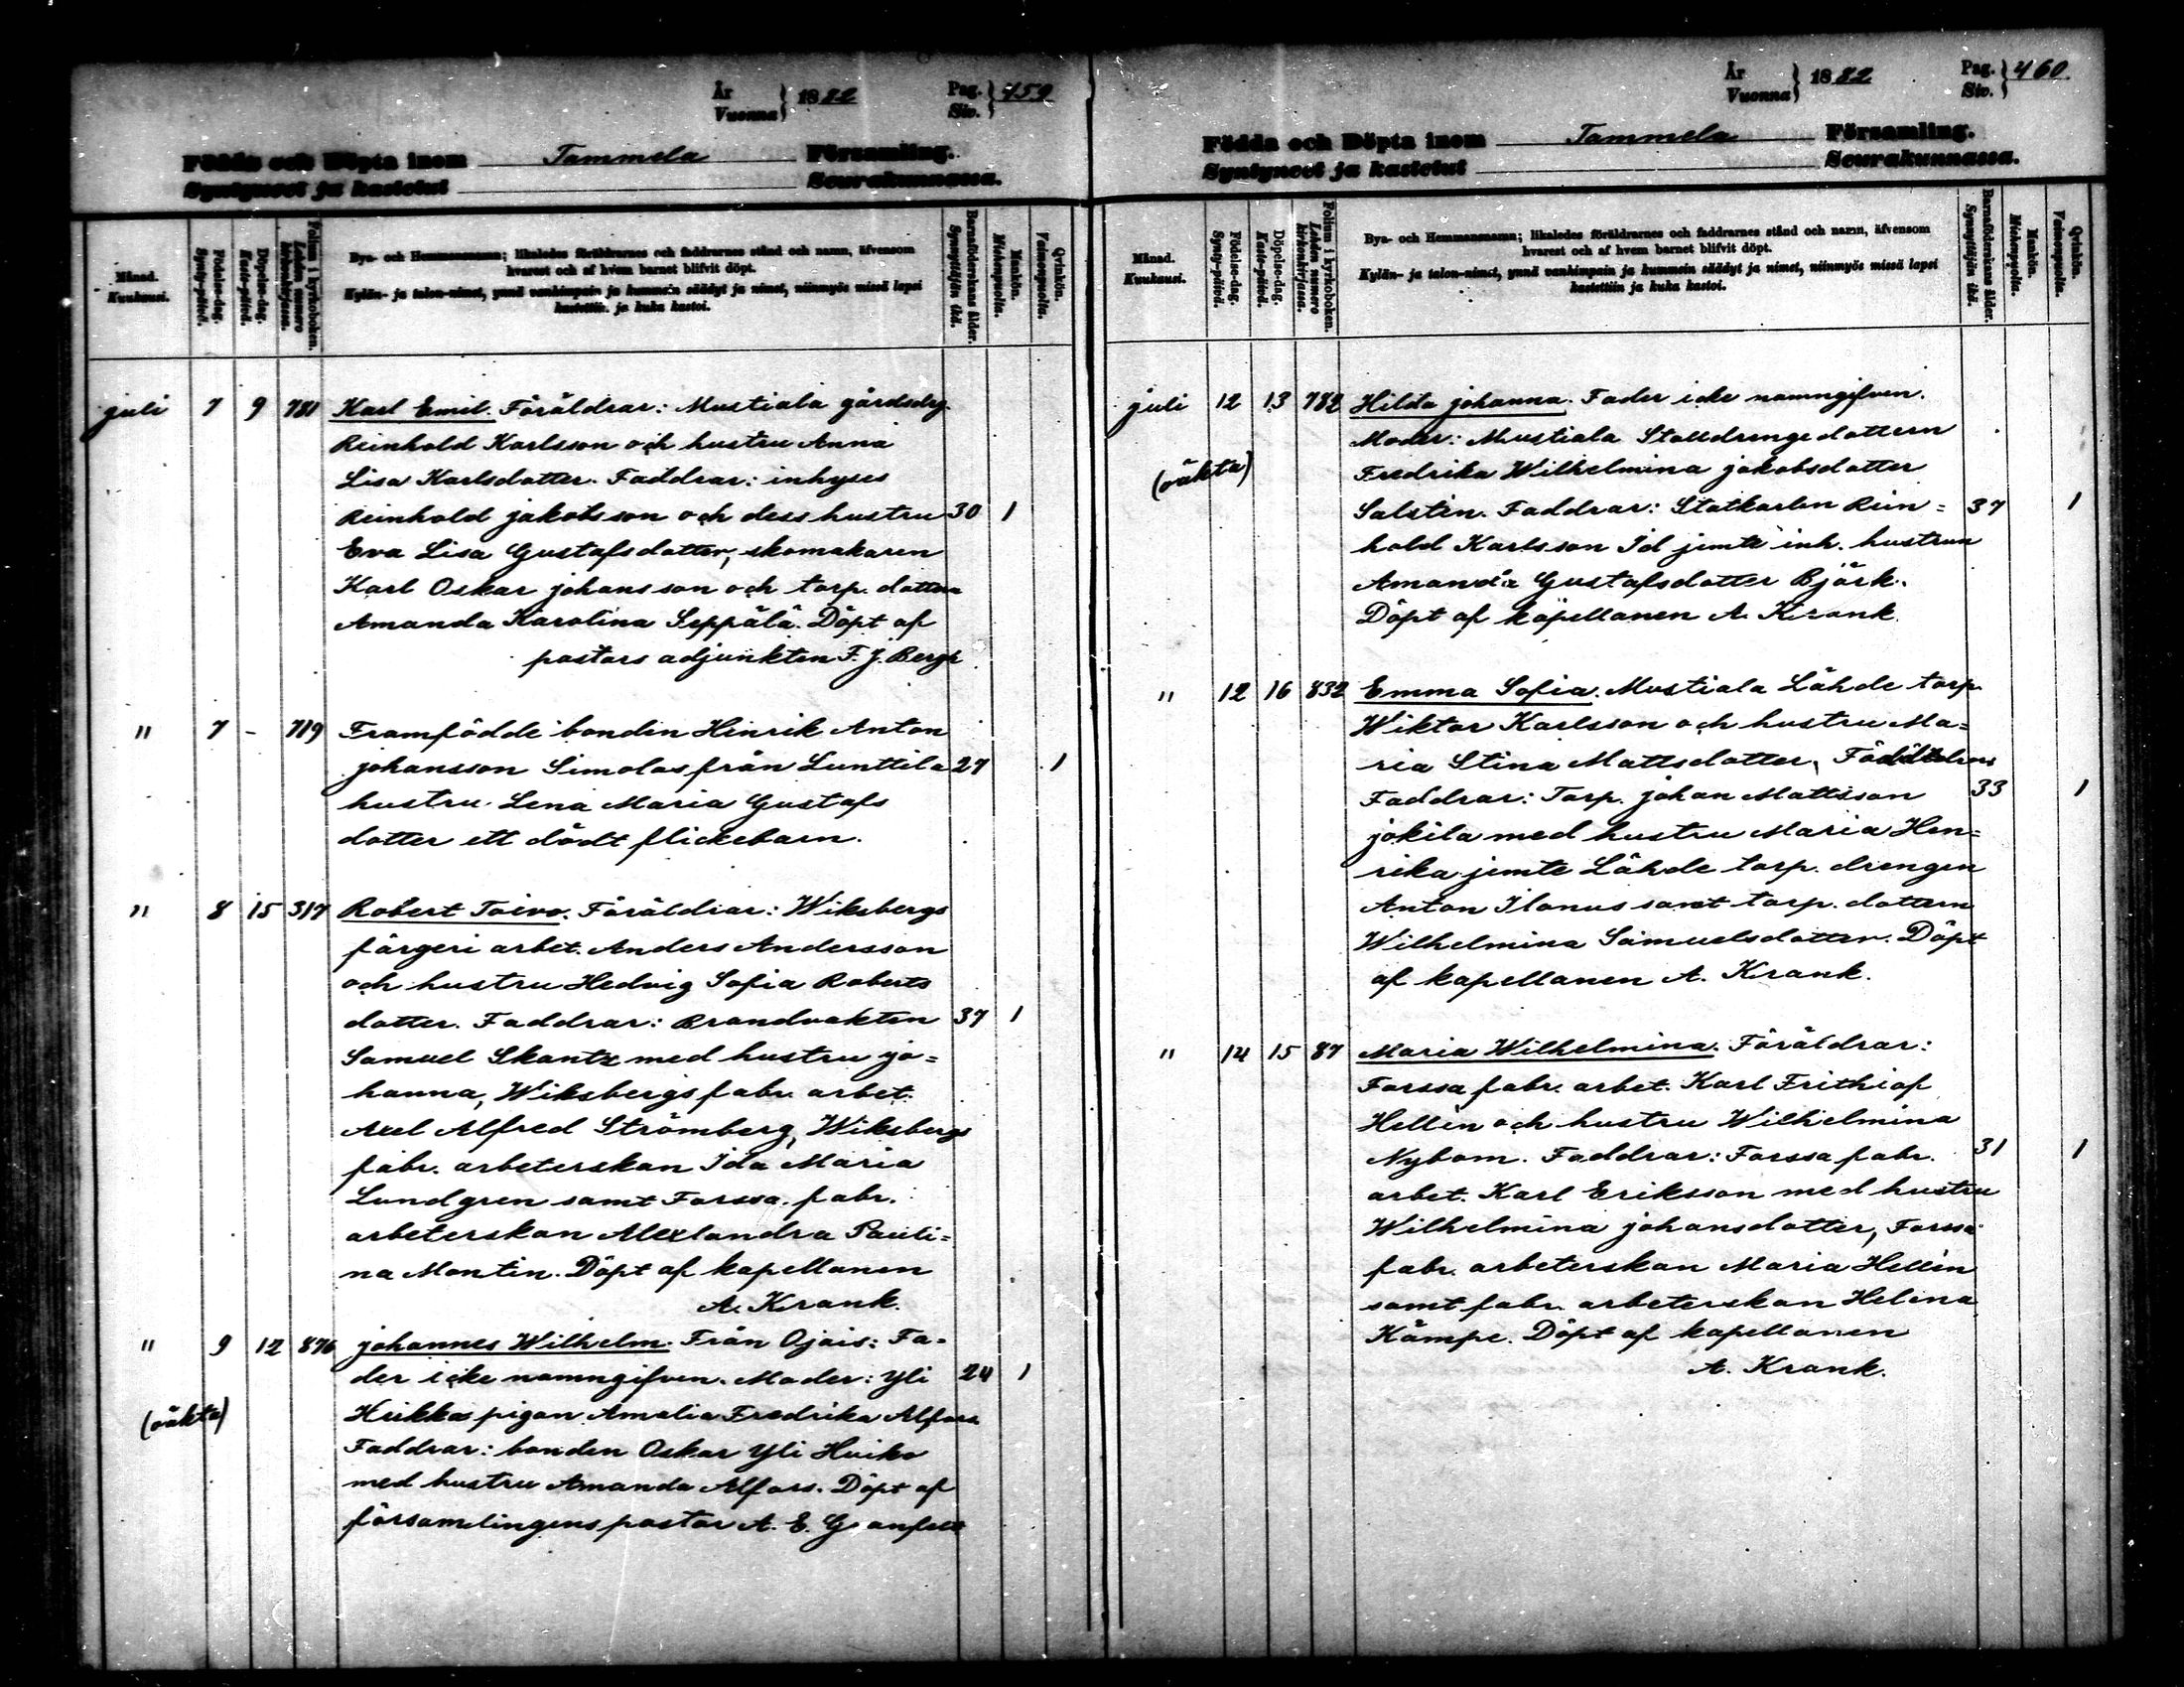 År
Vuonna } 1882
Pag.
Siv. } 459
Födda och Döpta inom Tammela Församling.
Syntyneet ja kastetut Seurakunnassa.
Månad.
Kuukausi.
Födelse-dag.
Synty-päivä.
Döpelse-dag.
Kaste-päivä.
Folium i kyrkoboken.
Lehden numero kirkonkirjassa.
Bya- och Hemmansnamn; likaledes föräldrarnes och faddrarnes stånd och namn, äfvensom
hvarest och af hvem barnet blifvit döpt.
Kylän- ja talon-nimet, ynnä vanhimpain ja kummein säädyt ja nimet, niinmyös missä lapsi
kastettiin ja kuka kastoi.
Barnaföderskans ålder.
Synnyttäjän ikä.
Mankön.
Miehenpuolta.
Qvinkön.
Vaimonpuolta.
juli 7 9 781 Karl Emil. Föräldrar: Mustiala gårdsdrg.
Reinhold Karlsson och hustru Anna
Lisa Karlsdotter. Faddrar: inhyses
Reinhold jakobsson och dess hustru 30 1
Eva Lisa Gustafsdotter, skomakaren
Karl Oskar johansson och torp. dottern
Amanda Karolina Seppälä. Döpt af
pastors adjunkten F. J. Bergh
" 7 - 719 Framfödde bonden Hinrik Anton
johansson Simolas från Lunttila 27 1
hustru Lena Maria Gustafs
dotter ett dödt flickebarn.
" 8 15 317 Robert Toivo. Föräldrar: Wiksbergs
färgeri arbet. Anders Andersson
och hustru Hedvig Sofia Roberts
dotter. Faddrar: Brandvakten 37 1
Samuel Skantz med hustru jo=
hanna, Wiksbergs fabr. arbet.
Axel Alfred Strömberg, Wiksbergs
fabr. arbeterskan Ida Maria
Lundgren samt Forssa fabr.
arbeterskan Alexandra Pauli=
na Montin. Döpt af kapellanen
A. Krank.
" 9 12 876 johannes Wilhelm. Från Ojais: Fa=
der icke namngifven. Moder: Yli 24 1
(oäkta) Heikka pigan Amalia Fredrika Alfors
Faddrar: bonden Oskar Yli Heiko
med hustru Amanda Alfors. Döpt af
församlingens pastor A. E. Granfelt
År
Vuonna } 1882
Pag.
Siv. } 460
Födda och Döpta inom Tammela Församling.
Syntyneet ja kastetut Seurakunnassa.
Månad.
Kuukausi.
Födelse-dag.
Synty-päivä.
Döpelse-dag.
Kaste-päivä.
Folium i kyrkoboken.
Lehden numero kirkonkirjassa.
Bya- och Hemmansnamn; likaledes föräldrarnes och faddrarnes stånd och namn, äfvensom
hvarest och af hvem barnet blifvit döpt.
Kylän- ja talon-nimet, ynnä vanhimpain ja kummein säädyt ja nimet, niinmyös missä lapsi
kastettiin ja kuka kastoi.
Barnaföderskans ålder.
Synnyttäjän ikä.
Mankön.
Miehenpuolta.
Qvinkön.
Vaimonpuolta.
juli 12 13 782 Hilda johanna. Fader icke namngifven.
Moder: Mustiala Stalldrengedottern
(oäkta) Fredrika Wilhelmina jakobsdotter
Salstin. Faddrar: Statkarlen Rein= 37 1
hold Karlsson Id jemte inh. hustrun
Amanda Gustafsdotter Björk.
Döpt af kapellanen A. Krank.
" 12 16 832 Emma Sofia. Mustiala Lähde torp.
Wiktor Karlsson och hustru Ma=
ria Stina Mattsdotter,
Faddrar: Torp. johan Mattsson 33 1
jokila med hustru Maria Hen=
rika jemte Lähde torp. drengen
Anton Ilonus samt torp. dottern
Wilhelmina Samuelsdotter. Döpt
af kapellanen A. Krank.
" 14 15 87 Maria Wilhelmina. Föräldrar:
Forssa fabr. arbet. Karl Frithiof
Hellin och hustru Wilhelmina
Nybom. Faddrar: Forssa fabr. 31 1
arbet. Karl Eriksson med hustru
Wilhelmina johansdotter, Forssa
fabr. arbeterskan Maria Hellin
samt fabr. arbeterskan Helena
Kämpe. Döpt af kapellanen
A. Krank.